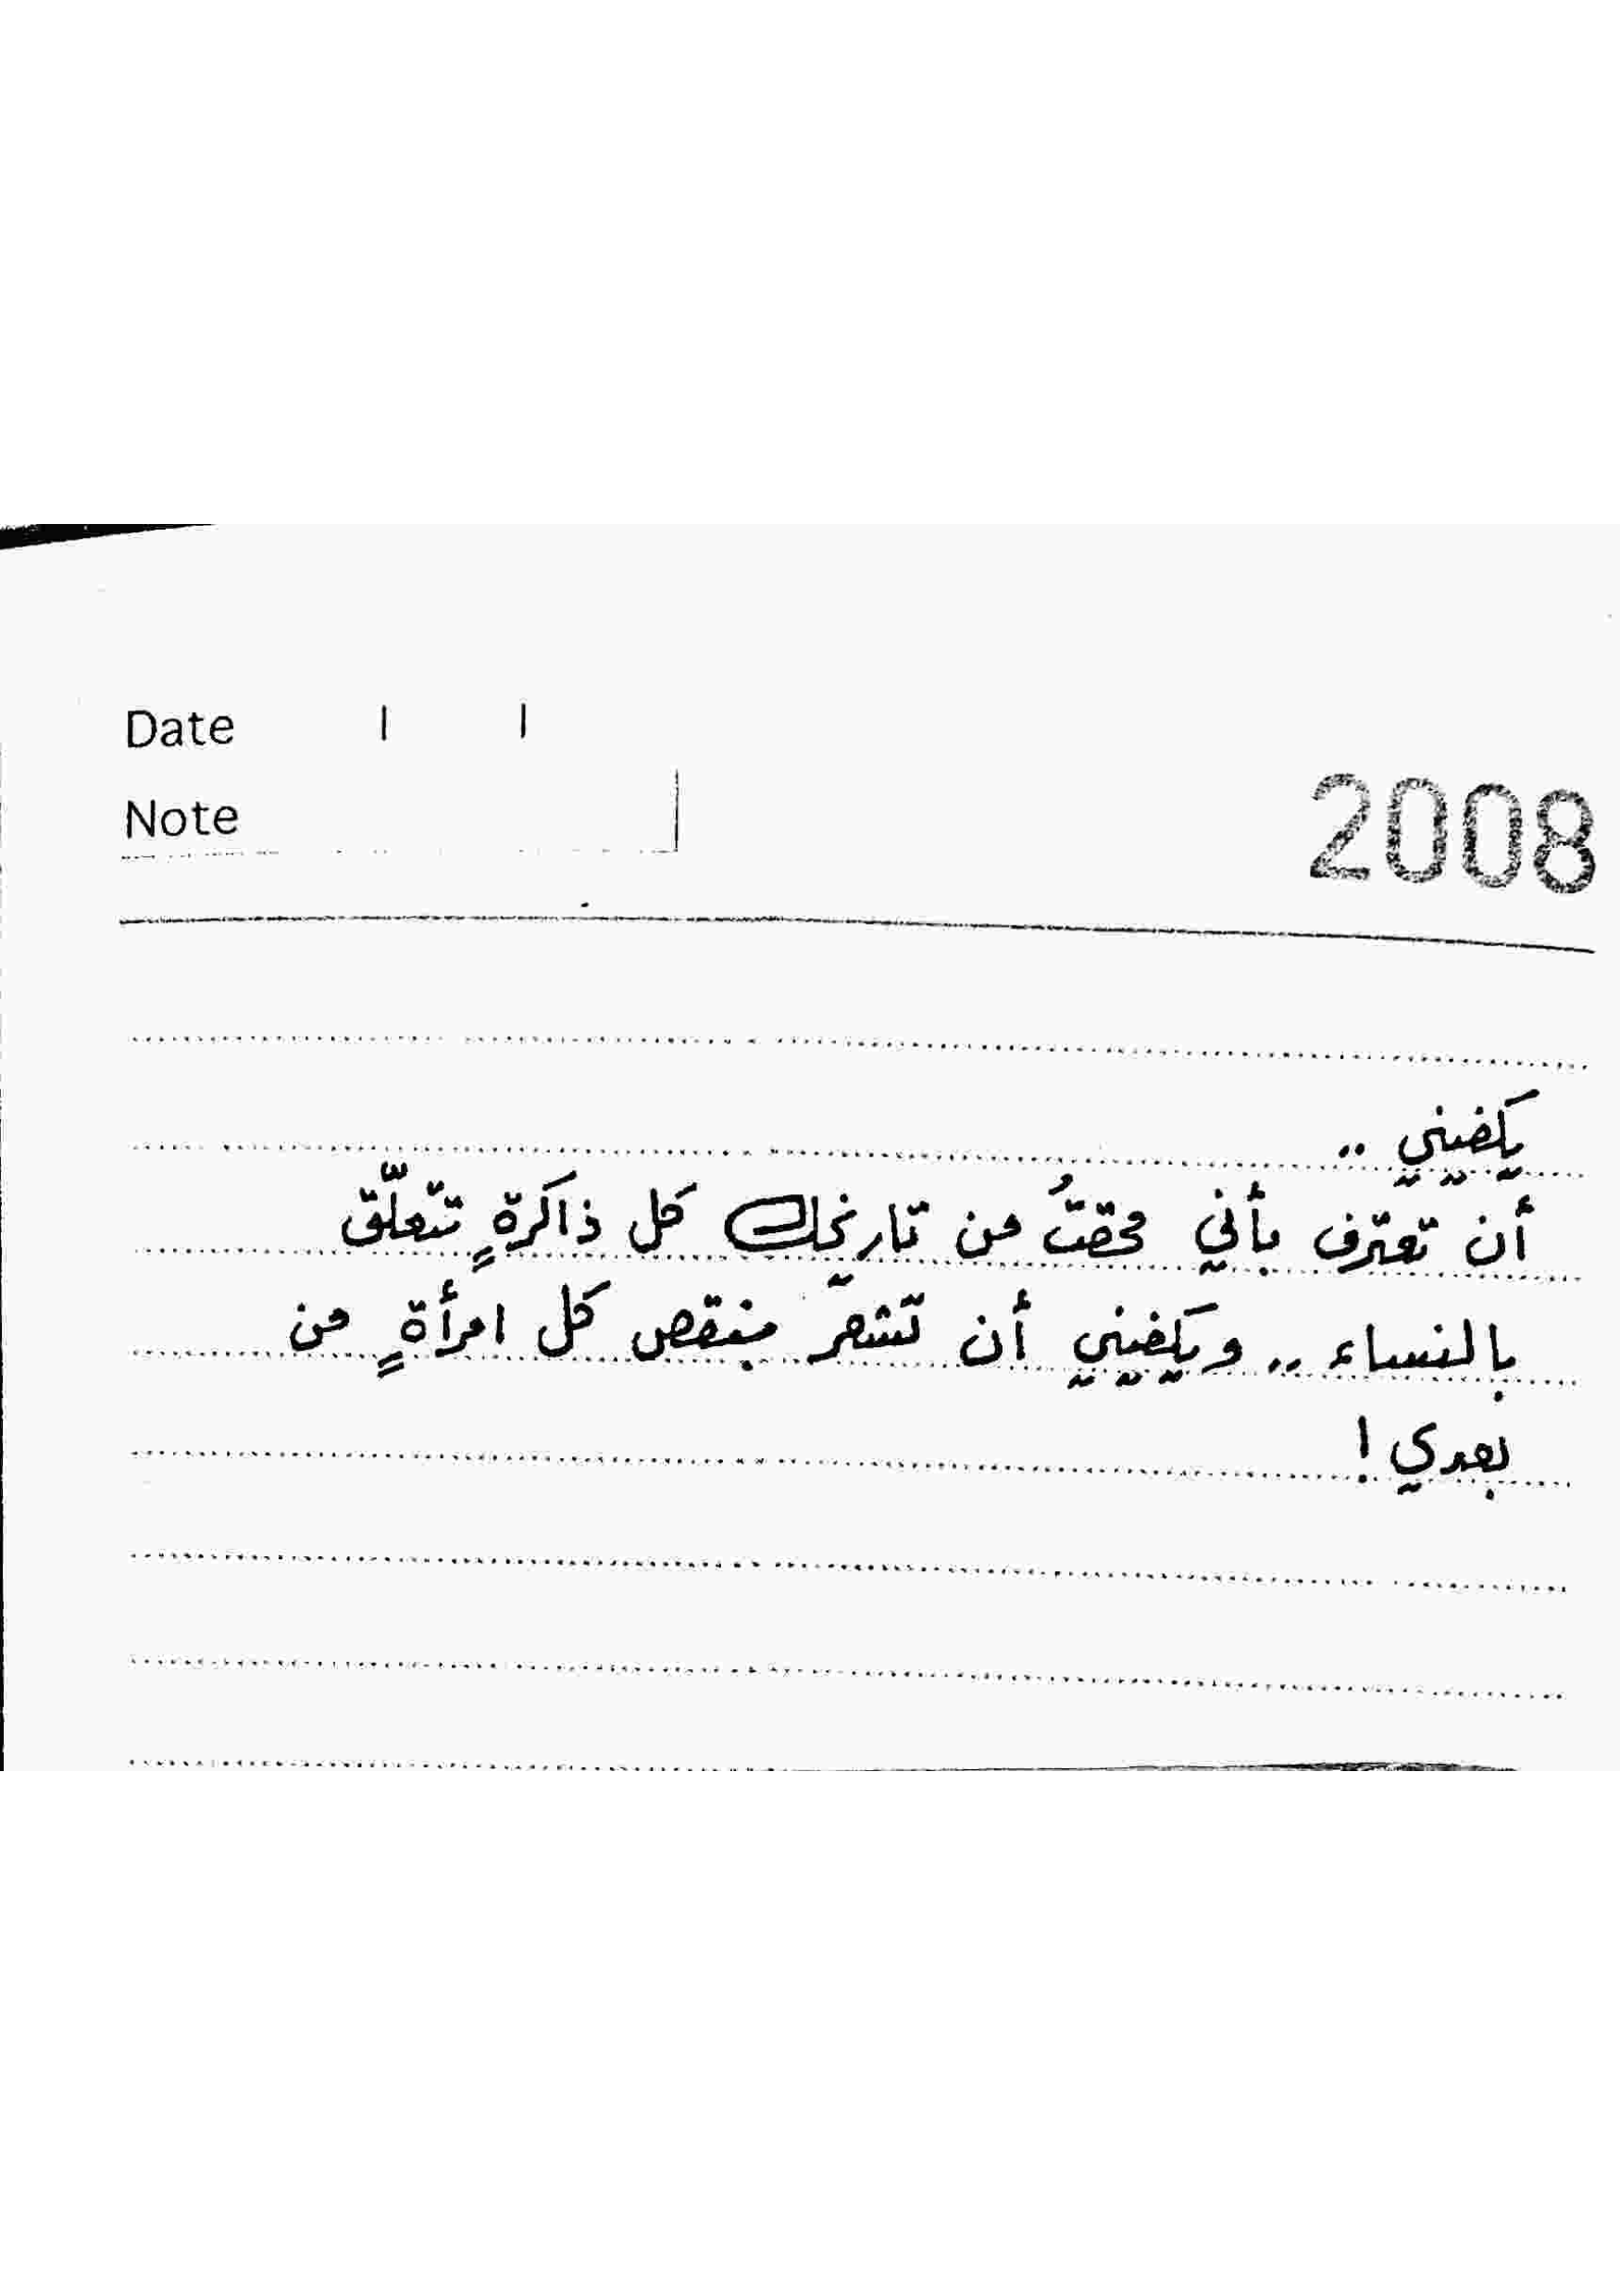 Date / /
Note
2008
يكفيني ..
أن تعترف بأني محقتُ من تاريخك كل ذاكرةٍ تتعلّق
بالنساء .. ويكفيني أن تشعرّ بنقص كل امرأةٍ من
بعدي !